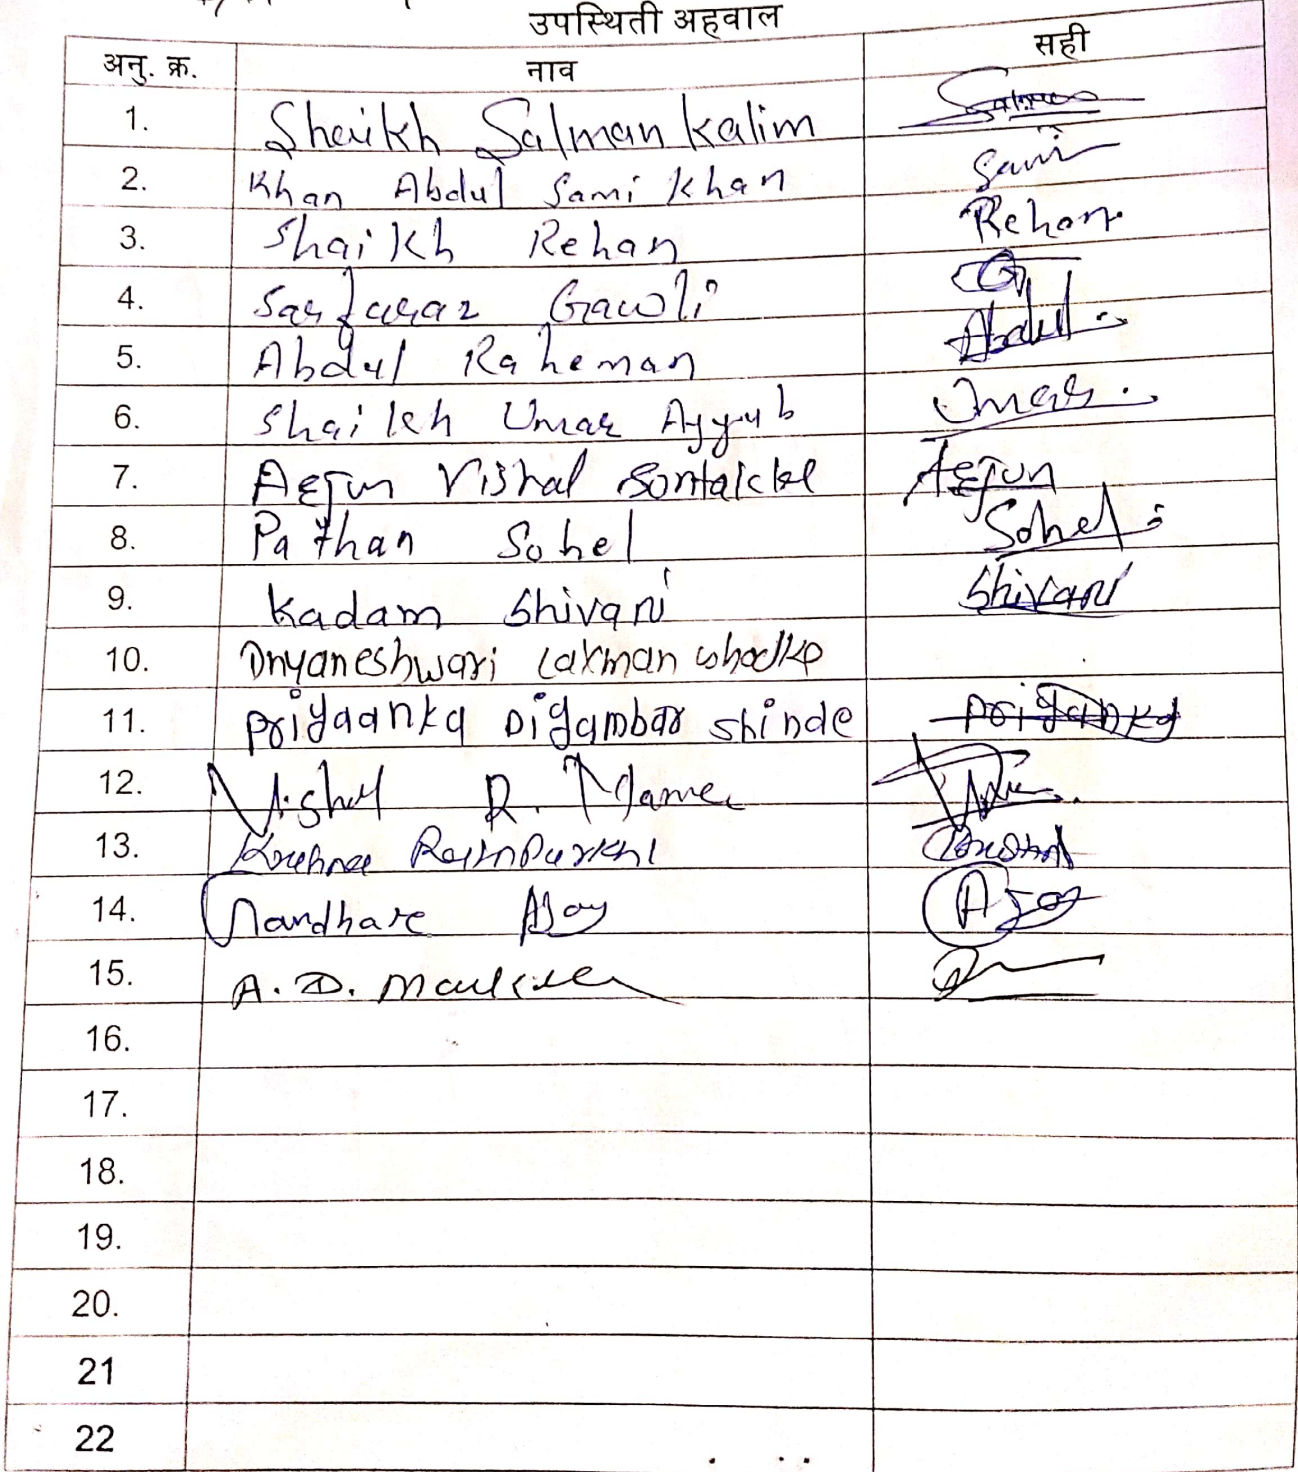 उपस्थिती अहवाल
अनु. क्र. नाव सही
1. Shaikh Salman Kalim Salman
2. Khan Abdul Sami Khan Sami
3. Shaikh Rehan Rehan
4. Sarfaraz Gawli
5. Abdul Raheman Abdul
6. Shaikh Umar Ayyub Umar
7. Arjun Vishal Arjun
8. Pathan Sohel Sohel
9. Kadam Shivani Shivani
10. Dnyaneshwari Laxman
11. Priyaanka Digambar Shinde Priyanka
12. Vishal R.
13. Krushna
14. Nandhare Ajay Ajay
15. A. D.
16.
17.
18.
19.
20.
21
22